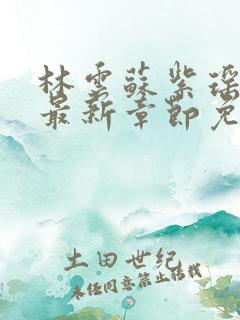 林雲蘇紫瑶
最新章節免
土田世纪
未经同意禁止转载